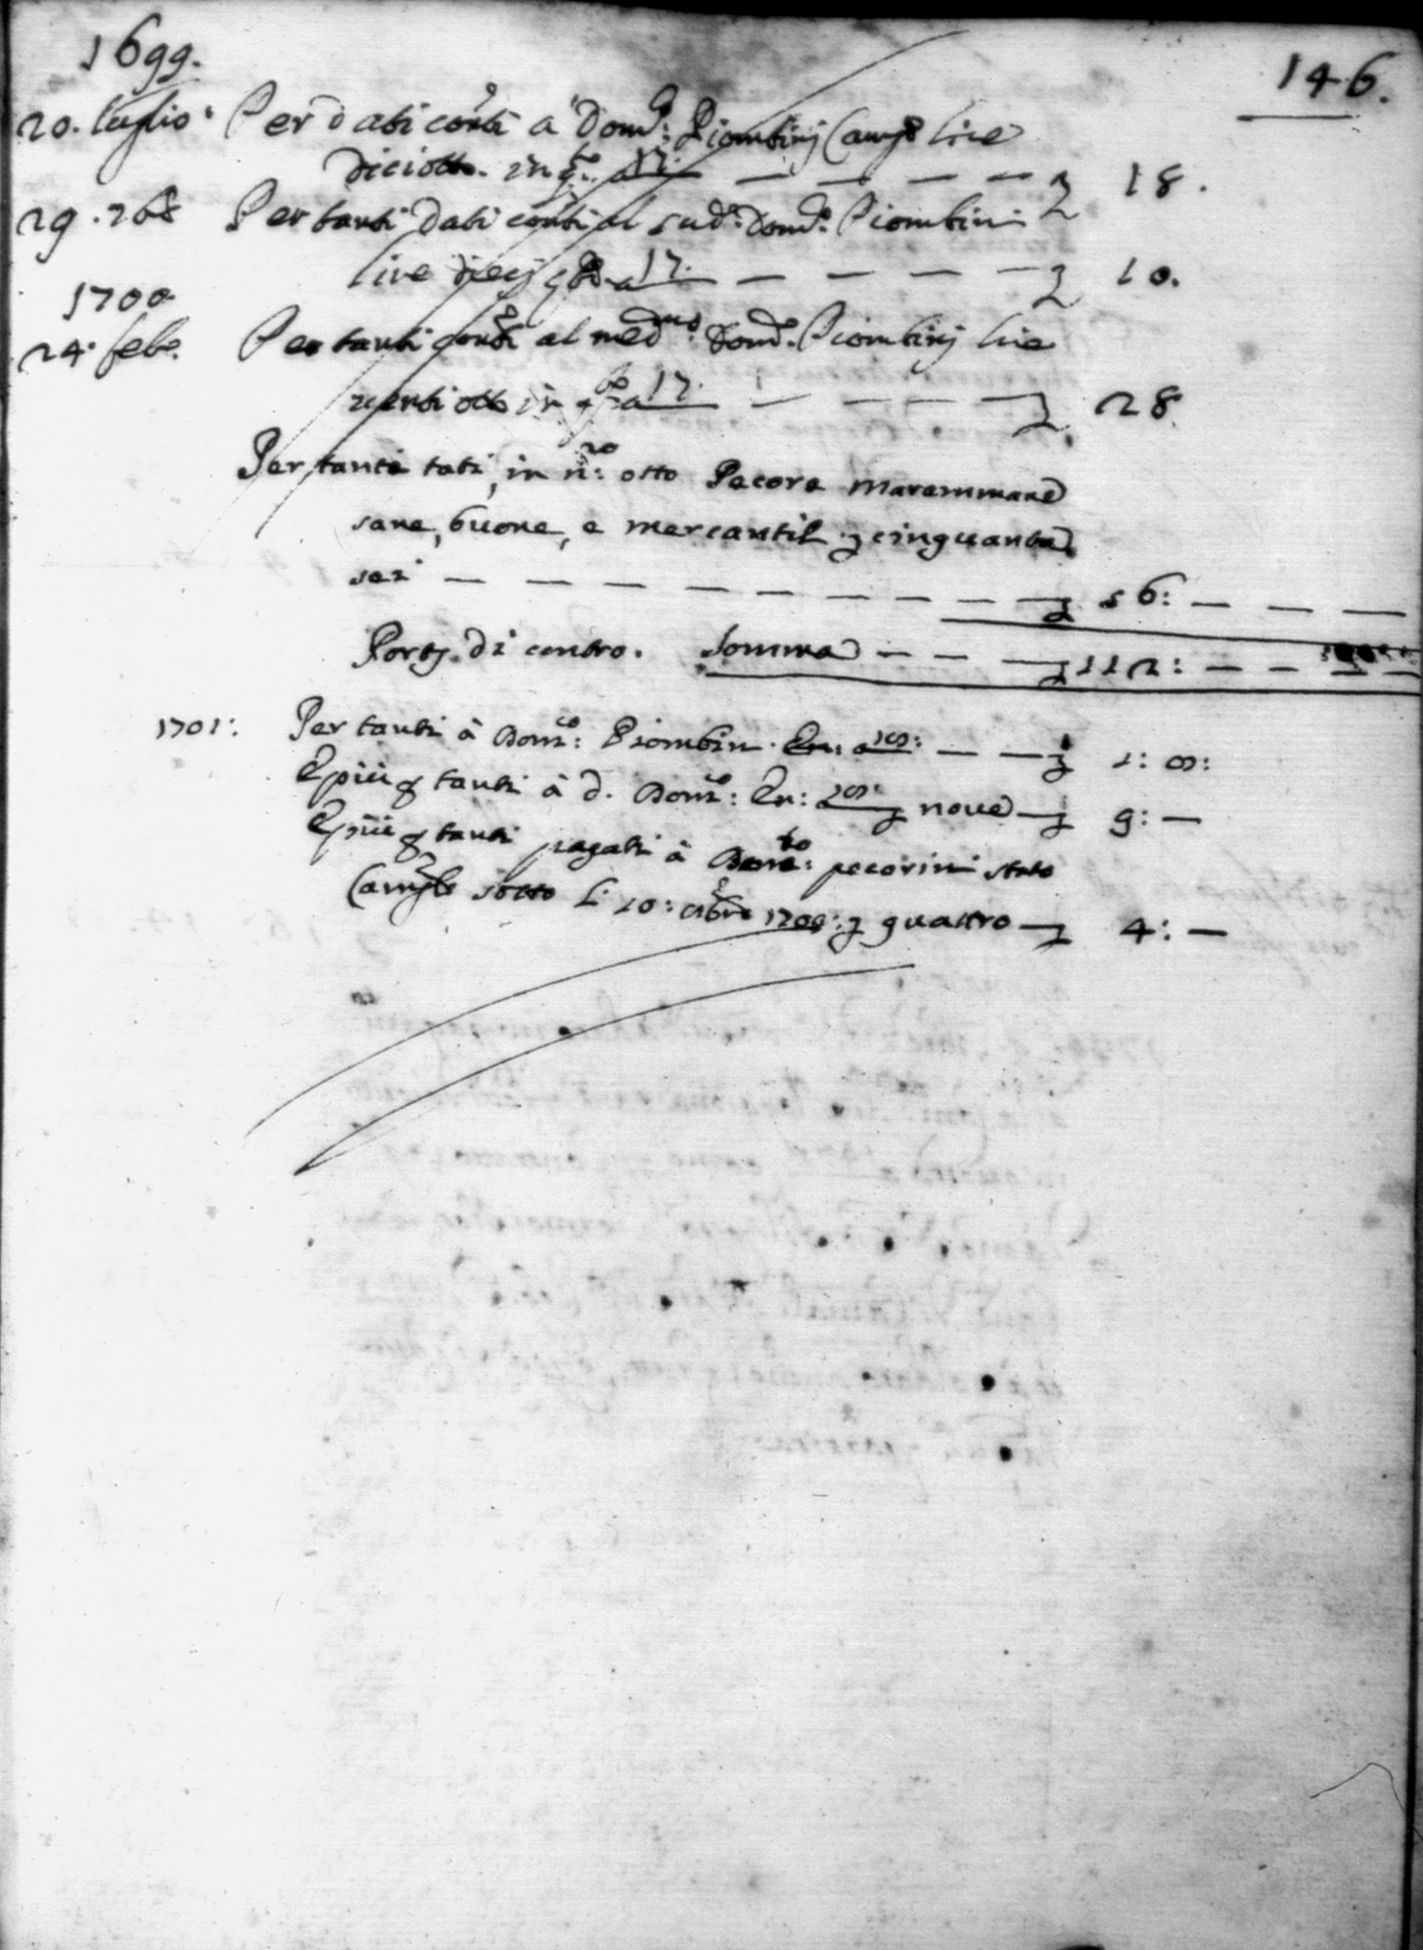 1699.
146.
20. luglio Per dati conti a Dom.co: Piombinj Camplo lire
diciotto. in q.o a 17. — — — — 18.
29. 7bre Per tanti dati conti al sud.o Dom.co Piombini
lire diecj a 17. — — — — 10.
1700
24. feb.o Per tanti conti al med.mo: Dom.co Piombinj lire
uentiotto in a 17. — — — — 28.
Per tanti tati, in n.ro: otto Pecore maremmane
sane, buone, e mercantil cinquanta
sei — — — — — — — — — 56: — — —
Porta di contro. Somma — — — 112: — —
1701: Per tanti à Dom.co: Piombin. En: a — — 1: 0:
E più p tanti à d. Dom.co: En: noue — 9: —
E più p tanti pagati à pecorini stato
Camplo sotto li 10: 9bre quattro — 4: —